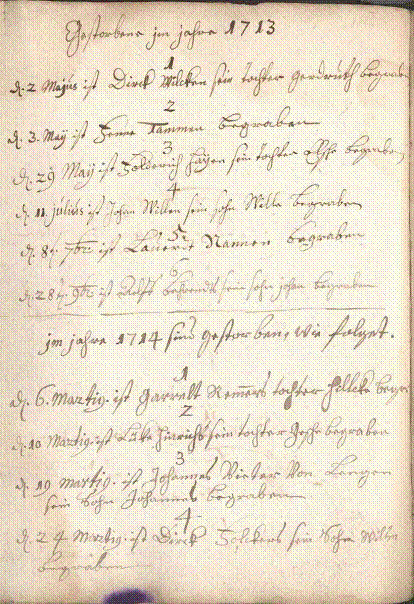 Gestorbene jm jahre 1713
1
d. 2 Majus ist Dirck Wilcken sein tochter gerdruth begraben
2
d. 3. May ist Tammen begraben
3
d. 29 May ist Folderich Hayen sein tochter begraben
4
d. 11 julius ist Johan Willen sein sohn Wille begraben
5
d. 8t. 7br ist Nannen begraben
6
d. 28t. 9br ist sein sohn johan begraben
jm jahre 1714 sind gestorben, wie folget.
1
d. 6. Martij. ist Garrelt Remmers tochter Hillcke begra
2
d. 10 Martij. ist Hinrichs sein tochter Gesche begraben
3
d. 19 martij. ist Johannes Vieter Von Lengen
sein Sohn Johannes begraben
4
d. 24 Martij ist Dirck Folckers sein Sohn Wille
begraben